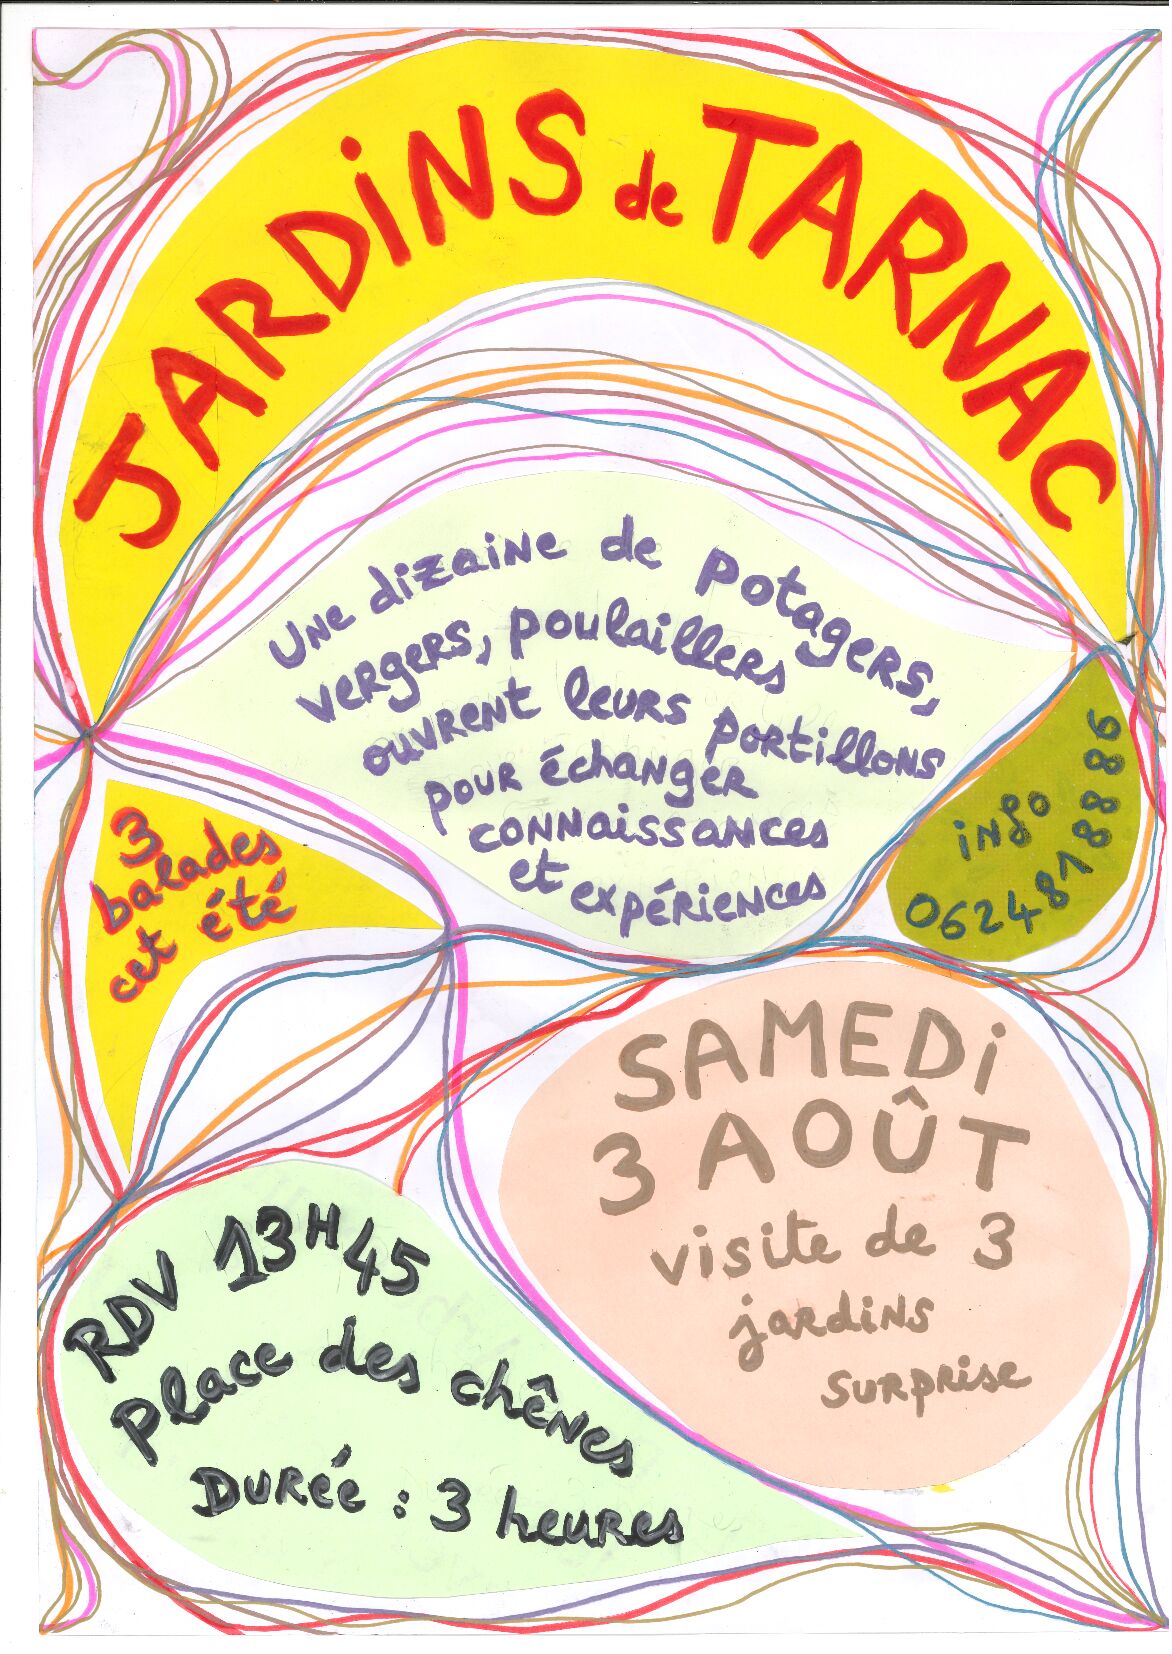 JARDiNS de TARNAC
UNe dizaine de potagers,
vergers, poulaillers
ouvrent leurs portillons
pour échanger
connaissances
et expériences
3
balades
cet été
info
0624818886
SAMEDi
3 AOÛT
visite de 3
jardins
surprise
RDV 13H45
place des chênes
DURée : 3 heures